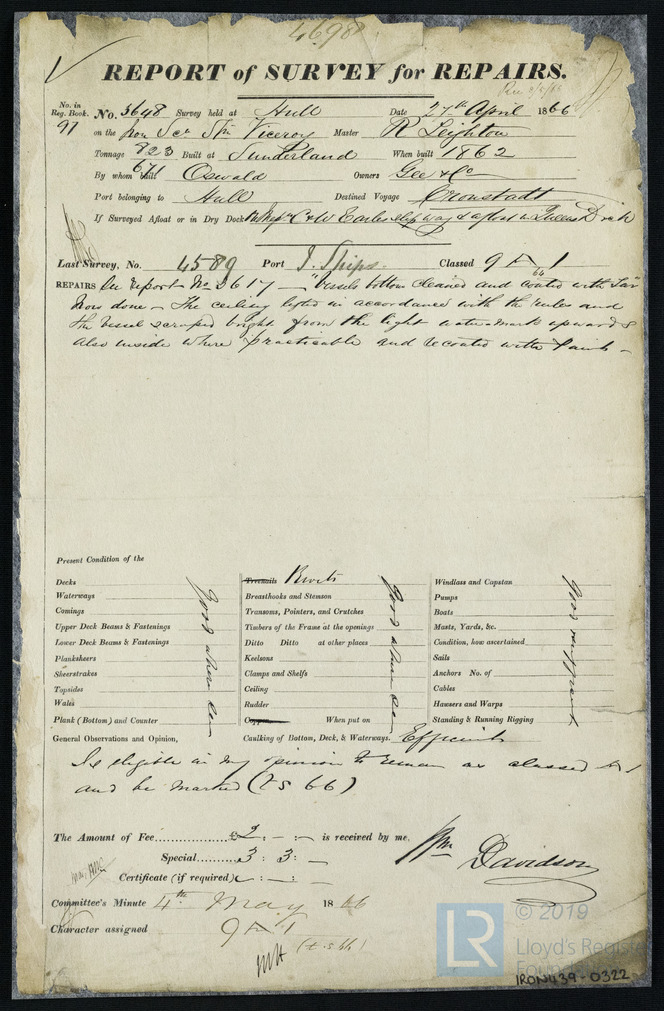 4698
REPORT of SURVEY for REPAIRS.
No. in Reg. Book.
97
No. 3648 Survey held at Hull Date 27th April 1866
on the Iron Scr Str Viceroy Master R Leighton
Tonnage 823 Built at Sunderland When built 1862
671
By whom built Oswald Owners Gee & Co
Port belonging to Hull Destined Voyage Cronstadt
If Surveyed Afloat or in Dry Dock C & W Earles slip way & afloat in Queens Dock
Last Survey, No. 4589 Port S. Ships. Classed 9 A 1
64
REPAIRS In report No 3617 — "Vessels bottom cleaned and coated with Tar"
Now done — The ceiling lifted in accordance with the rules and
the Vessel scraped bright from the light water-mark upwards
also inside where practicable and recoated with paint —
Present Condition of the
Decks
Waterways
Comings
Upper Deck Beams & Fastenings
Lower Deck Beams & Fastenings
Planksheers
Sheerstrakes
Topsides
Wales
Plank (Bottom) and Counter
Good where seen
Treenails Rivets
Breasthooks and Stemson
Transoms, Pointers, and Crutches
Timbers of the Frame at the openings
Ditto Ditto at other places
Keelsons
Clamps and Shelfs
Ceiling
Rudder
Copper When put on
Good where seen
Windlass and Capstan
Pumps
Boats
Masts, Yards, &c.
Condition, how ascertained
Sails
Anchors No. of
Cables
Hawsers and Warps
Standing & Running Rigging
Good
General Observations and Opinion, Caulking of Bottom, Deck, & Waterways. Efficient
Is eligible in my opinion to remain as classed A 1
and be marked (ts 66)
The Amount of Fee £2 : - : - is received by me,
Special 3 : 3 : -
Certificate (if required) : - : -
Wm Davidson
Committee's Minute 4th May 1866
Character assigned 9 A 1
(t.s 66)
LR
© 2019
Lloyd's Register
Foundation
IRON439-0322